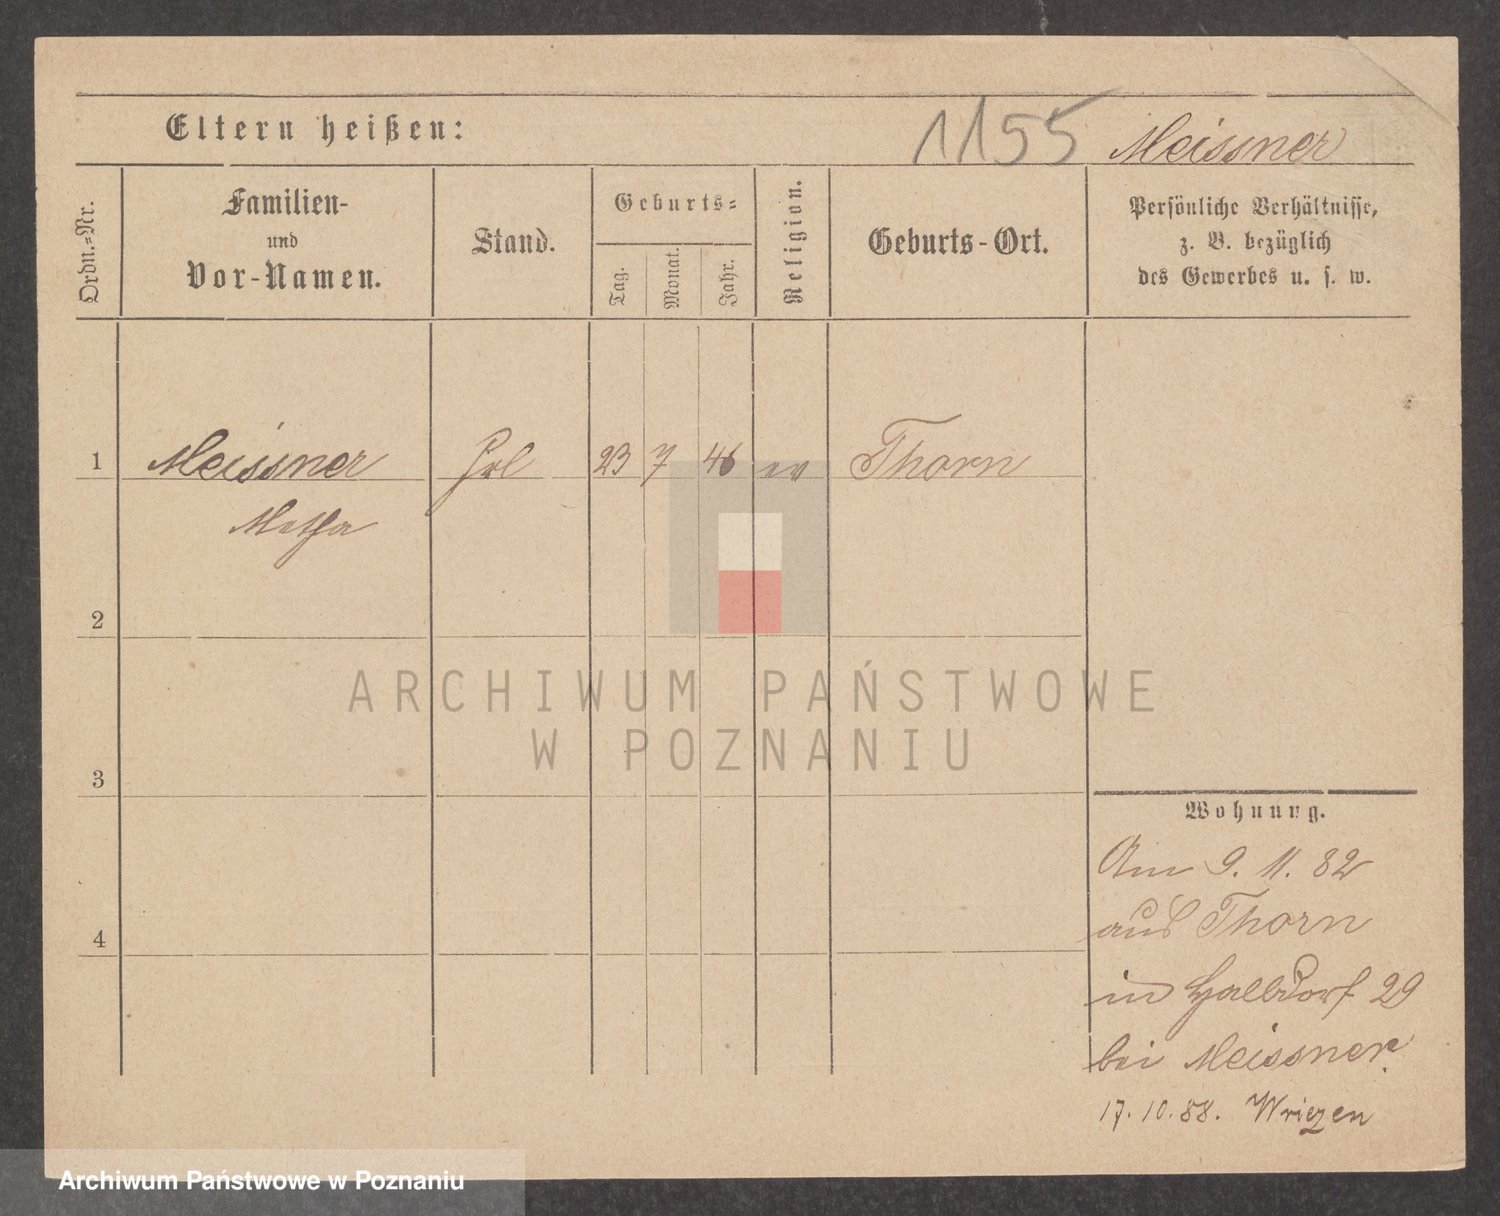 Eltern heißen:
1155 Meissner
Ordn.=Nr.
Familien-
und
Vor-Namen.
Stand.
Geburts=
Tag.
Monat.
Jahr.
Religion.
Geburts-Ort.
Persönliche Verhältnisse,
z. B. bezüglich
des Gewerbes u. s. w.
1 Meissner Frl 23 7 46 ev Thorn
2
3
4
Wohnung.
Am 9. 11. 82
aus Thorn
in Halbdorf 29
bei Meissner.
17. 10. 88. Wriezen
ARCHIWUM PAŃSTWOWE
W POZNANIU
Archiwum Państwowe w Poznaniu